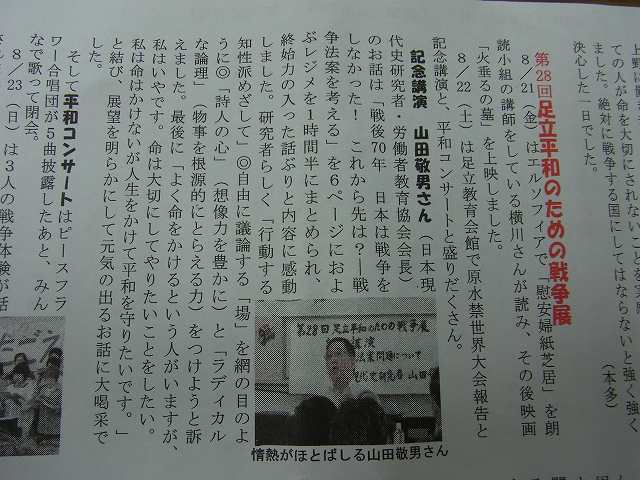 ての人が命を大切にされないことを実
ました。絶対に戦争する国にしてはならないと強く強く
決心した一日でした。 (本多)
第28回足立平和のための戦争展
8/21(金)はエルソフィアで「慰安婦紙芝居」を朗
読小組の講師をしている横川さんが読み、その後映画
「火垂るの墓」を上映しました。
8/22(土)は足立教育会館で原水禁世界大会報告と
記念講演と、平和コンサートと盛りだくさん。
記念講演 山田敬男さん(日本現
代史研究者・労働者教育協会会長)
のお話は「戦後70年 日本は戦争を
しなかった! これから先は?―戦
争法案を考える」を6ページにおよ
ぶレジメを1時間半にまとめられ、
終始力の入った話ぶりと内容に感動
しました。研究者らしく「行動する
知性派めざして」◎自由に議論する「場」を網の目のよ
うに◎「詩人の心」(想像力を豊かに)と「ラディカル
な論理」(物事を根源的にとらえる力)をつけようと訴
えました。最後に「よく命をかけるという人がいますが、
私はいやです。命は大切にしてやりたいことをしたい。
私は命はかけないが人生をかけて平和を守りたいです。」
と結び、展望を明らかにして元気の出るお話に大喝采で
した。
第28回足立平和のための戦争展
講演
法案問題について
現代史研究者 山田
情熱がほとばしる山田敬男さん
そして平和コンサートはピースフラ
ワー合唱団が5曲披露したあと、みん
なで歌って閉会。
8/23(日)は3人の戦争体験が話